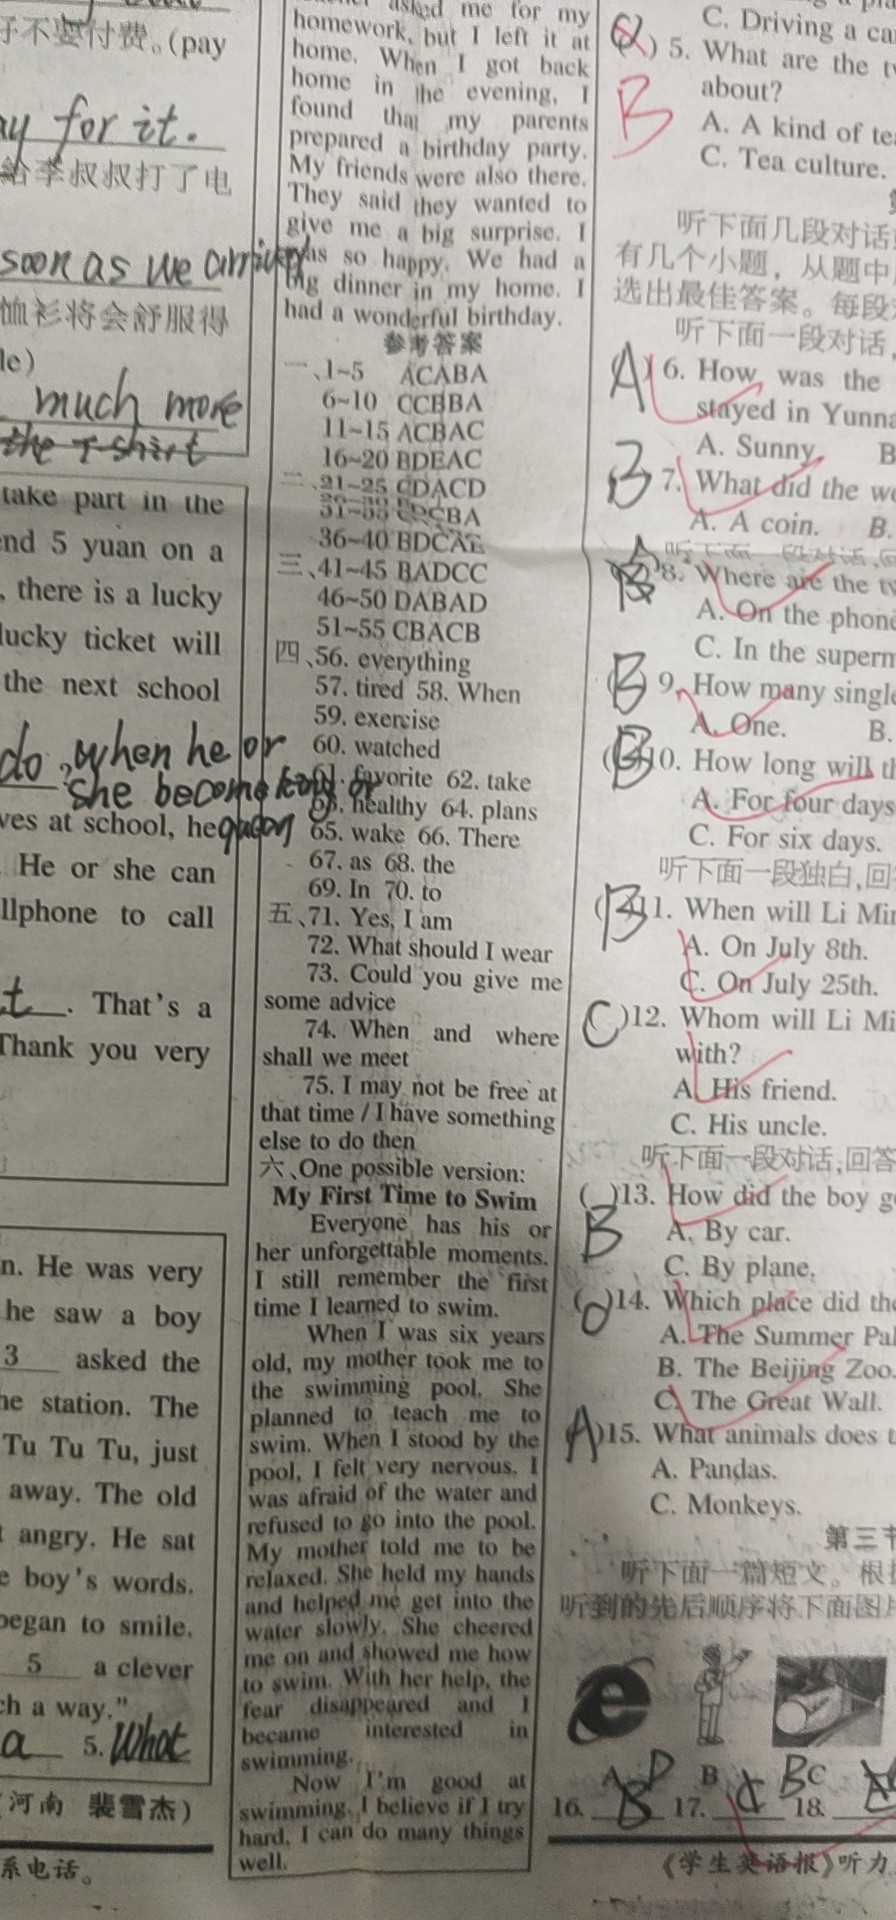 好不要付费。(pay
ay for it.
给李叔叔打了电
soon as we arrived
恤衫将会舒服得
le)
much more
the T-shirt
take part in the
end 5 yuan on a
, there is a lucky
lucky ticket will
the next school
do, when he or
she become king or
ves at school, he queen
. He or she can
llphone to call
t. That's a
Thank you very
n. He was very
he saw a boy
3 asked the
he station. The
Tu Tu Tu, just
away. The old
t angry. He sat
e boy's words.
began to smile.
5 a clever
ch a way."
a 5. What
(河南 裴雪杰)
系电话。
asked me for my
homework, but I left it at
home. When I got back
home in the evening, I
found that my parents
prepared a birthday party.
My friends were also there.
They said they wanted to
give me a big surprise. I
was so happy. We had a
big dinner in my home. I
had a wonderful birthday.
参考答案
一、1~5 ACABA
6~10 CCBBA
11~15 ACBAC
16~20 BDEAC
二、21~25 CDACD
36~40 BDCAE
三、41~45 BADCC
46~50 DABAD
51~55 CBACB
四、56. everything
57. tired 58. When
59. exercise
60. watched
61. favorite 62. take
63. healthy 64. plans
65. wake 66. There
67. as 68. the
69. In 70. to
五、71. Yes, I am
72. What should I wear
73. Could you give me
some advice
74. When and where
shall we meet
75. I may not be free at
that time / I have something
else to do then
六、One possible version:
My First Time to Swim
Everyone has his or
her unforgettable moments.
I still remember the first
time I learned to swim.
When I was six years
old, my mother took me to
the swimming pool. She
planned to teach me to
swim. When I stood by the
pool, I felt very nervous. I
was afraid of the water and
refused to go into the pool.
My mother told me to be
relaxed. She held my hands
and helped me get into the
water slowly. She cheered
me on and showed me how
to swim. With her help, the
fear disappeared and I
became interested in
swimming.
Now I'm good at
swimming. I believe if I try
hard, I can do many things
well.
C. Driving a ca
( ) 5. What are the tw
about?
B
A. A kind of te
C. Tea culture.
听下面几段对话
有几个小题，从题中
选出最佳答案。每段
听下面一段对话，
(A) 6. How was the
stayed in Yunna
A. Sunny. B
B 7. What did the we
A. A coin. B.
听下面一段对话,回
8. Where are the tw
A. On the phone
C. In the superm
(B 9. How many single
A. One. B.
(B 10. How long will th
A. For four days
C. For six days.
听下面一段独白,回答
(B 11. When will Li Min
A. On July 8th.
C. On July 25th.
C )12. Whom will Li Mi
with?
A. His friend.
C. His uncle.
听下面一段对话,回答
( )13. How did the boy g
B
A. By car.
C. By plane.
( )14. Which place did the
A. The Summer Pal
B. The Beijing Zoo.
C. The Great Wall.
A )15. What animals does t
A. Pandas.
C. Monkeys.
第三节
听下面一篇短文。根据
听到的先后顺序将下面图片
A D B BC
16. B 17. C 18.
《学生英语报》听力